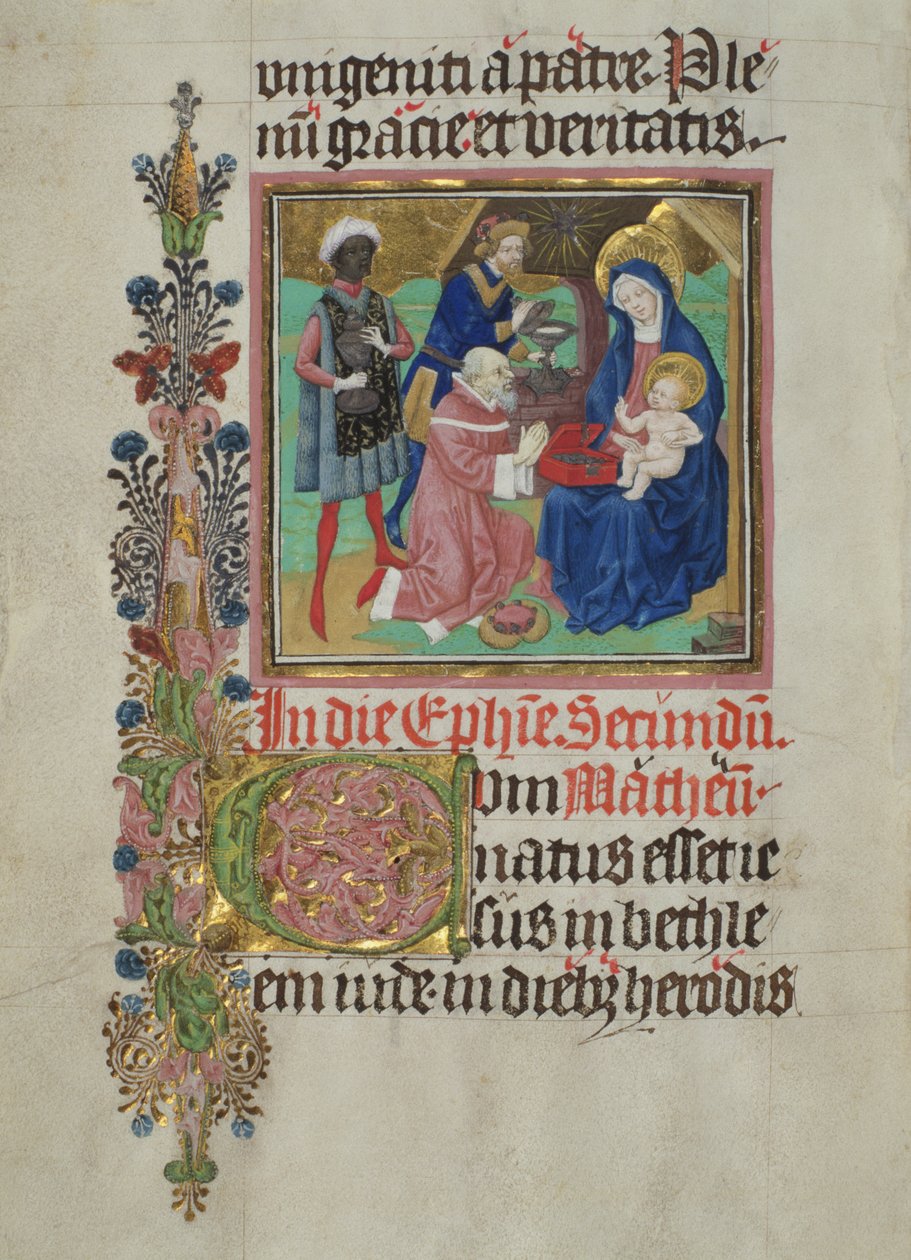 unigeniti a patre. Ple
nū gracie et veritatis.
In die Ephīe. Secūndū.
Cum Mathēū.
natus esset ie
sus in bethle
em iude. in dieb⁊ herodis